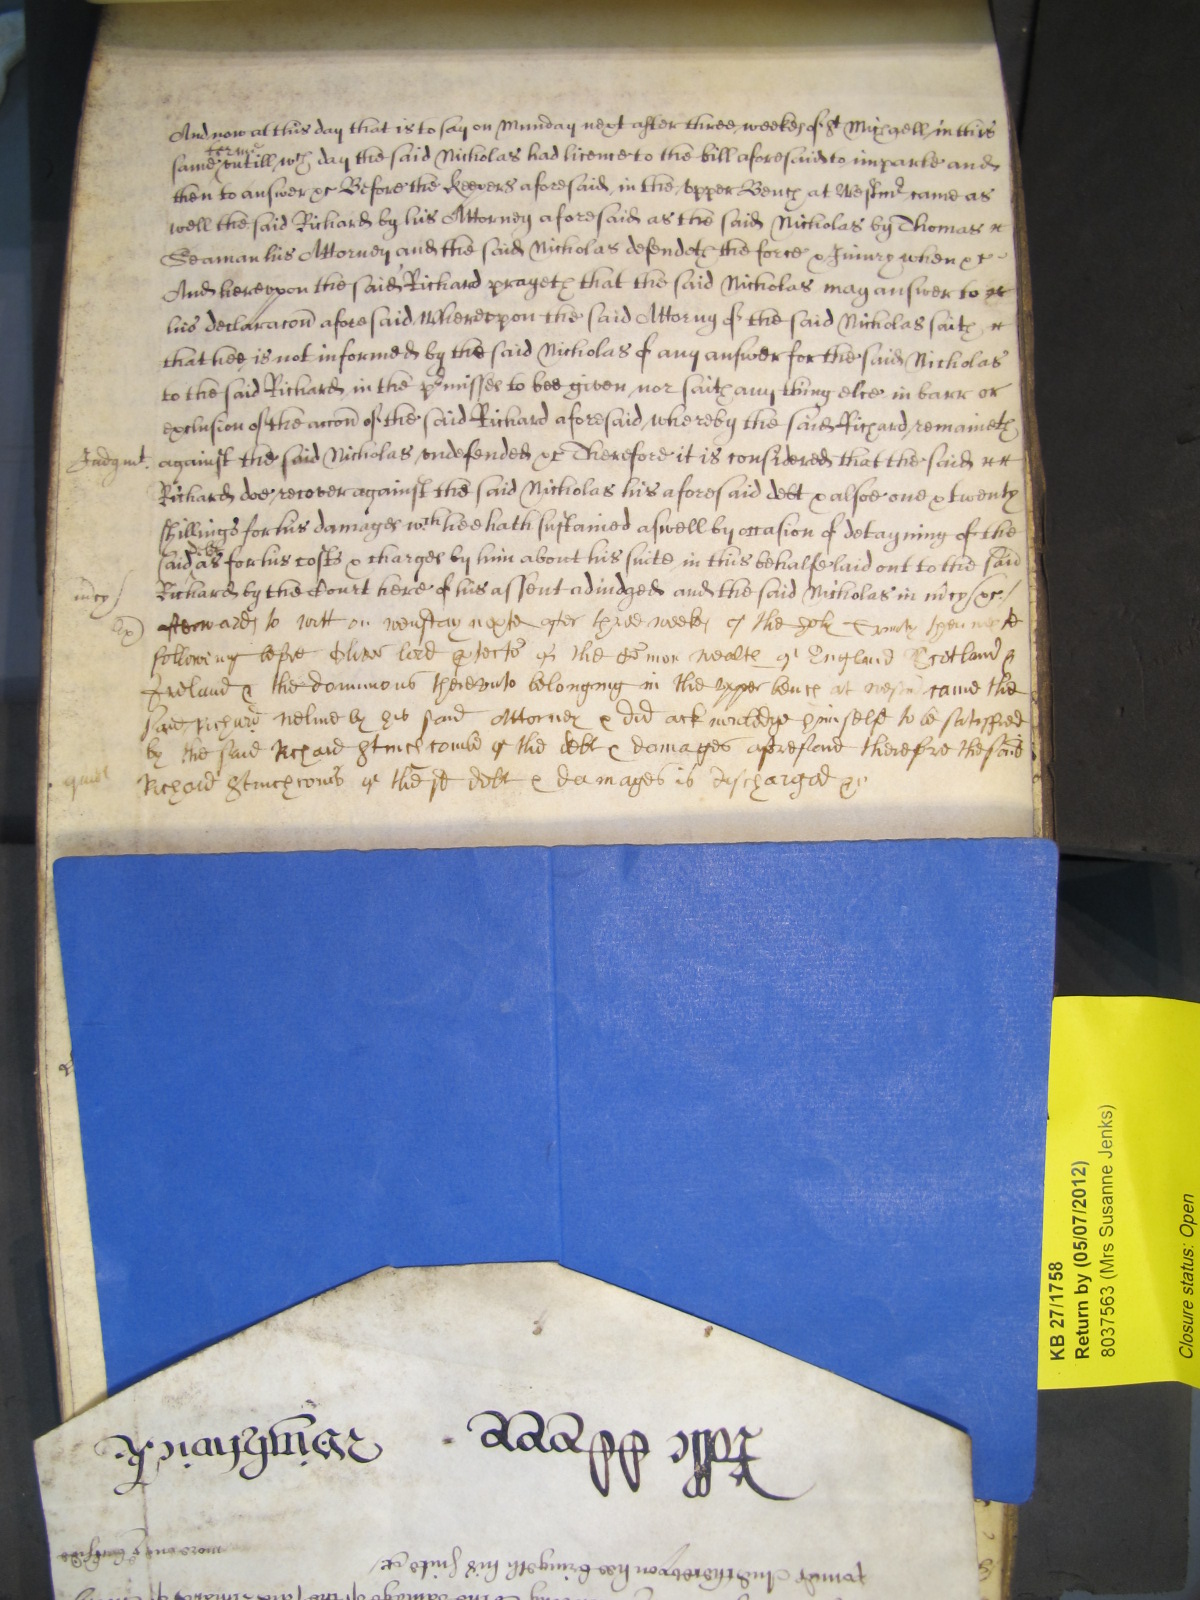 And now at this day that is to say on Munday next after three weekes of St Michaell in this
same terme untill wch day the said Nicholas had licence to the bill aforesaid to imparle and
then to answer &c Before the Keepers aforesaid in the upper Bench at Westmr came as
well the said Richard by his Attorney aforesaid as the said Nicholas by Thomas
Seaman his Attorney and the said Nicholas defendeth the force & Injury when &c
And hereupon the said Richard prayeth that the said Nicholas may answer to
his declaracon aforesaid Whereupon the said Attorny of the said Nicholas saith
that hee is not informed by the said Nicholas of any answer for the said Nicholas
to the said Richard in the pmisses to bee given nor saith any thing else in barr or
exclusion of the accon of the said Richard aforesaid whereby the said Richard remaineth
Judgmt. against the said Nicholas undefended &c Therefore it is considered that the said
Richard doe recover against the said Nicholas his aforesaid debt & alsoe one & twenty
shillings for his damages wch hee hath sustained aswell by occasion of detayning of the
said debt as for his costs & charges by him about his suite in this behalfe laid out to the said
mcy Richard by the Court here of his assent adiudged and the said Nicholas in mcy &c
afterwards to witt on wensday next after three weekes of the holy Trinity then next
following before Oliver lord ptector of the Comon wealth of England Scotland &
Ireland & the dominions thereunto belonging in the upper bench at came the
said Richard by his said Attorney & did acknowledge himselfe to be satisfied
by the said Richard Stinchcombe of the debt & damages aforesaid therefore the said
Richard Stinchcombe of the sd debt & damages is discharged &c
KB 27/1758
Return by (05/07/2012)
8037563 (Mrs Susanne Jenks)
Closure status: Open
Wightwick
more one & thirtie
pounds And thereupon hee bringeth his suite &c